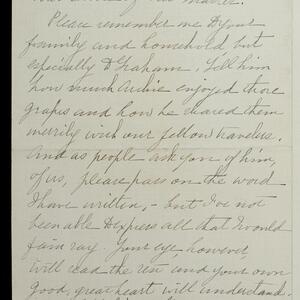 Please remember me to your
family and household but
especially to Graham. Tell him
how much Archie enjoyed those
grapes and how he shared them
merrily with our fellow travelers.
And as people ask you of him,
of us, please pass on the word
I have written, - but I've not
been able to express all that I would
fain say. Your eye, however,
will read the rest and your own
good, great heart will understand.